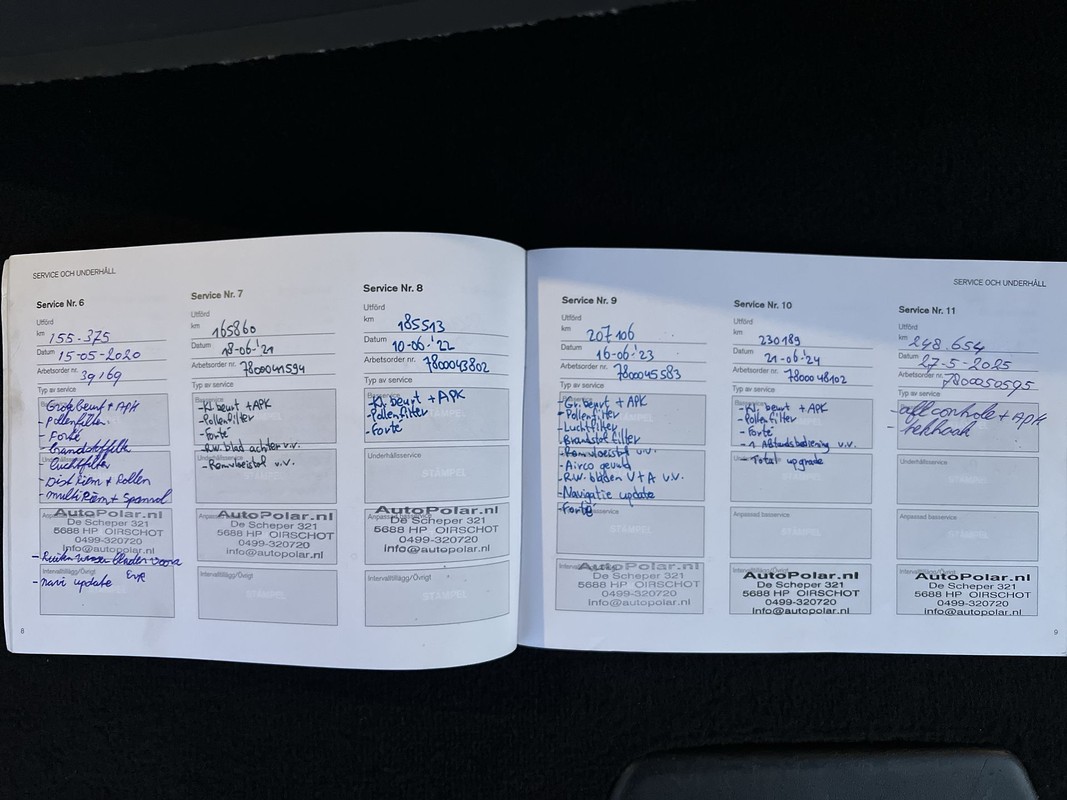 SERVICE OCH UNDERHÅLL
Service Nr. 6
Utförd
km 155.375
Datum 15-05-2020
Arbetsorder nr. 39169
Typ av service
- Grote beurt + APK
- Pollenfilter
- Forté
- brandstoffilter
- Luchtfilter
- Dist Riem + Rollen
- multi Riem + Spanrol
AutoPolar.nl
De Scheper 321
5688 HP OIRSCHOT
0499-320720
info@autopolar.nl
- Ruitenwisser bladen voor
Intervalltillägg/Övrigt
- navi update
8
Service Nr. 7
Utförd
km 165860
Datum 18-06-'21
Arbetsorder nr. 7800041594
Typ av service
- Kl. beurt + APK
- Pollenfilter
- Forté
- R.w. blad achter v.v.
- Remvloeistof v.v.
AutoPolar.nl
De Scheper 321
5688 HP OIRSCHOT
0499-320720
info@autopolar.nl
Intervalltillägg/Övrigt
STÄMPEL
Service Nr. 8
Utförd
km 185513
Datum 10-06-'22
Arbetsorder nr. 7800043802
Typ av service
- Kl. beurt + APK
- Pollenfilter
- Forté
Underhållsservice
STÄMPEL
AutoPolar.nl
De Scheper 321
5688 HP OIRSCHOT
0499-320720
info@autopolar.nl
Intervalltillägg/Övrigt
STÄMPEL
SERVICE OCH UNDERHÅLL
Service Nr. 9
Utförd
km 207106
Datum 16-06-'23
Arbetsorder nr. 7800045583
Typ av service
- Gr. beurt + APK
- Pollenfilter
- Luchtfilter
- Brandstoffilter
- Remvloeistof v.v.
- Airco gevuld
- R.w. bladen V+A v.v.
- Navigatie update
- Forté
STÄMPEL
AutoPolar.nl
De Scheper 321
5688 HP OIRSCHOT
0499-320720
info@autopolar.nl
Service Nr. 10
Utförd
km 230189
Datum 21-06-'24
Arbetsorder nr. 7800048102
Typ av service
- Kl. beurt + APK
- Pollenfilter
- Forté
- 1 Afstandsbediening v.v.
- Total upgrade
Anpassad basservice
AutoPolar.nl
De Scheper 321
5688 HP OIRSCHOT
0499-320720
info@autopolar.nl
Service Nr. 11
Utförd
km 248.654
Datum 27-5-2025
Arbetsorder nr. 7800050595
Typ av service
+ APK
- trekhaak
Underhållsservice
Anpassad basservice
AutoPolar.nl
De Scheper 321
5688 HP OIRSCHOT
0499-320720
info@autopolar.nl
9